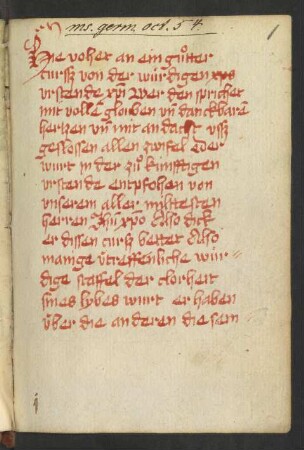 ms. germ. oct. 54.
1
Hie vohet an ein gůtter
cursz von der würdigen
vrstende xpi Wer den sprichet
mit vollē glouben vn̄ danckbarē
hertzen vn̄ mit andacht vsz
geslossen allen zwifel Der
wurt in der zů kunfftigen
vrstende entpfohen von
vnserem aller miltesten
herren Jhū xpo Also dick
er dissen cursz bettet Also
manige v̓treffenliche wür⸗
dige staffel der clorheit
sines lybes wurt er haben
über die anderen die sin